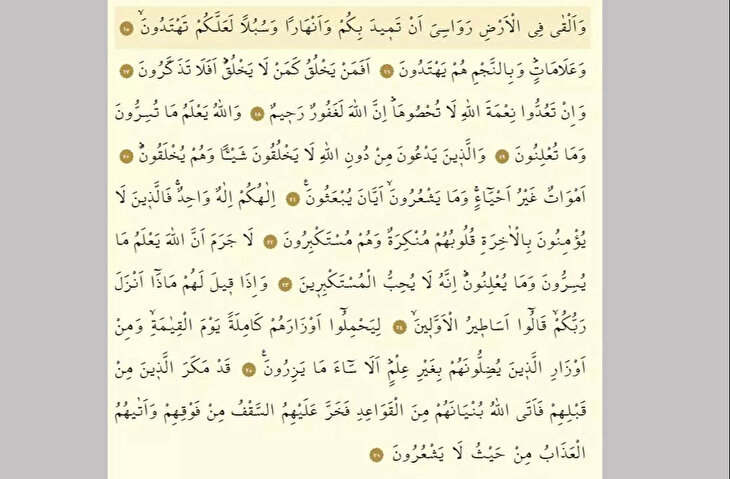 وَاَلْقٰى فِى الْاَرْضِ رَوَاسِىَ اَنْ تَم۪يدَ بِكُمْ وَاَنْهَارًا وَسُبُلًا لَعَلَّكُمْ تَهْتَدُونَۙ ١٥
وَعَلَامَاتٍۜ وَبِالنَّجْمِ هُمْ يَهْتَدُونَ ١٦ اَفَمَنْ يَخْلُقُ كَمَنْ لَا يَخْلُقُۜ اَفَلَا تَذَكَّرُونَ ١٧
وَاِنْ تَعُدُّوا نِعْمَةَ اللّٰهِ لَا تُحْصُوهَاۜ اِنَّ اللّٰهَ لَغَفُورٌ رَح۪يمٌ ١٨ وَاللّٰهُ يَعْلَمُ مَا تُسِرُّونَ
وَمَا تُعْلِنُونَ ١٩ وَالَّذ۪ينَ يَدْعُونَ مِنْ دُونِ اللّٰهِ لَا يَخْلُقُونَ شَيْـًٔا وَهُمْ يُخْلَقُونَۜ ٢٠
اَمْوَاتٌ غَيْرُ اَحْيَٓاءٍۚ وَمَا يَشْعُرُونَۙ اَيَّانَ يُبْعَثُونَ۟ ٢١ اِلٰهُكُمْ اِلٰهٌ وَاحِدٌۚ فَالَّذ۪ينَ لَا
يُؤْمِنُونَ بِالْاٰخِرَةِ قُلُوبُهُمْ مُنْكِرَةٌ وَهُمْ مُسْتَكْبِرُونَ ٢٢ لَا جَرَمَ اَنَّ اللّٰهَ يَعْلَمُ مَا
يُسِرُّونَ وَمَا يُعْلِنُونَۜ اِنَّهُ لَا يُحِبُّ الْمُسْتَكْبِر۪ينَ ٢٣ وَاِذَا ق۪يلَ لَهُمْ مَاذَٓا اَنْزَلَ
رَبُّكُمْۙ قَالُٓوا اَسَاط۪يرُ الْاَوَّل۪ينَۙ ٢٤ لِيَحْمِلُٓوا اَوْزَارَهُمْ كَامِلَةً يَوْمَ الْقِيٰمَةِۙ وَمِنْ
اَوْزَارِ الَّذ۪ينَ يُضِلُّونَهُمْ بِغَيْرِ عِلْمٍۜ اَلَا سَٓاءَ مَا يَزِرُونَ۟ ٢٥ قَدْ مَكَرَ الَّذ۪ينَ مِنْ
قَبْلِهِمْ فَاَتَى اللّٰهُ بُنْيَانَهُمْ مِنَ الْقَوَاعِدِ فَخَرَّ عَلَيْهِمُ السَّقْفُ مِنْ فَوْقِهِمْ وَاَتٰيهُمُ
الْعَذَابُ مِنْ حَيْثُ لَا يَشْعُرُونَ ٢٦